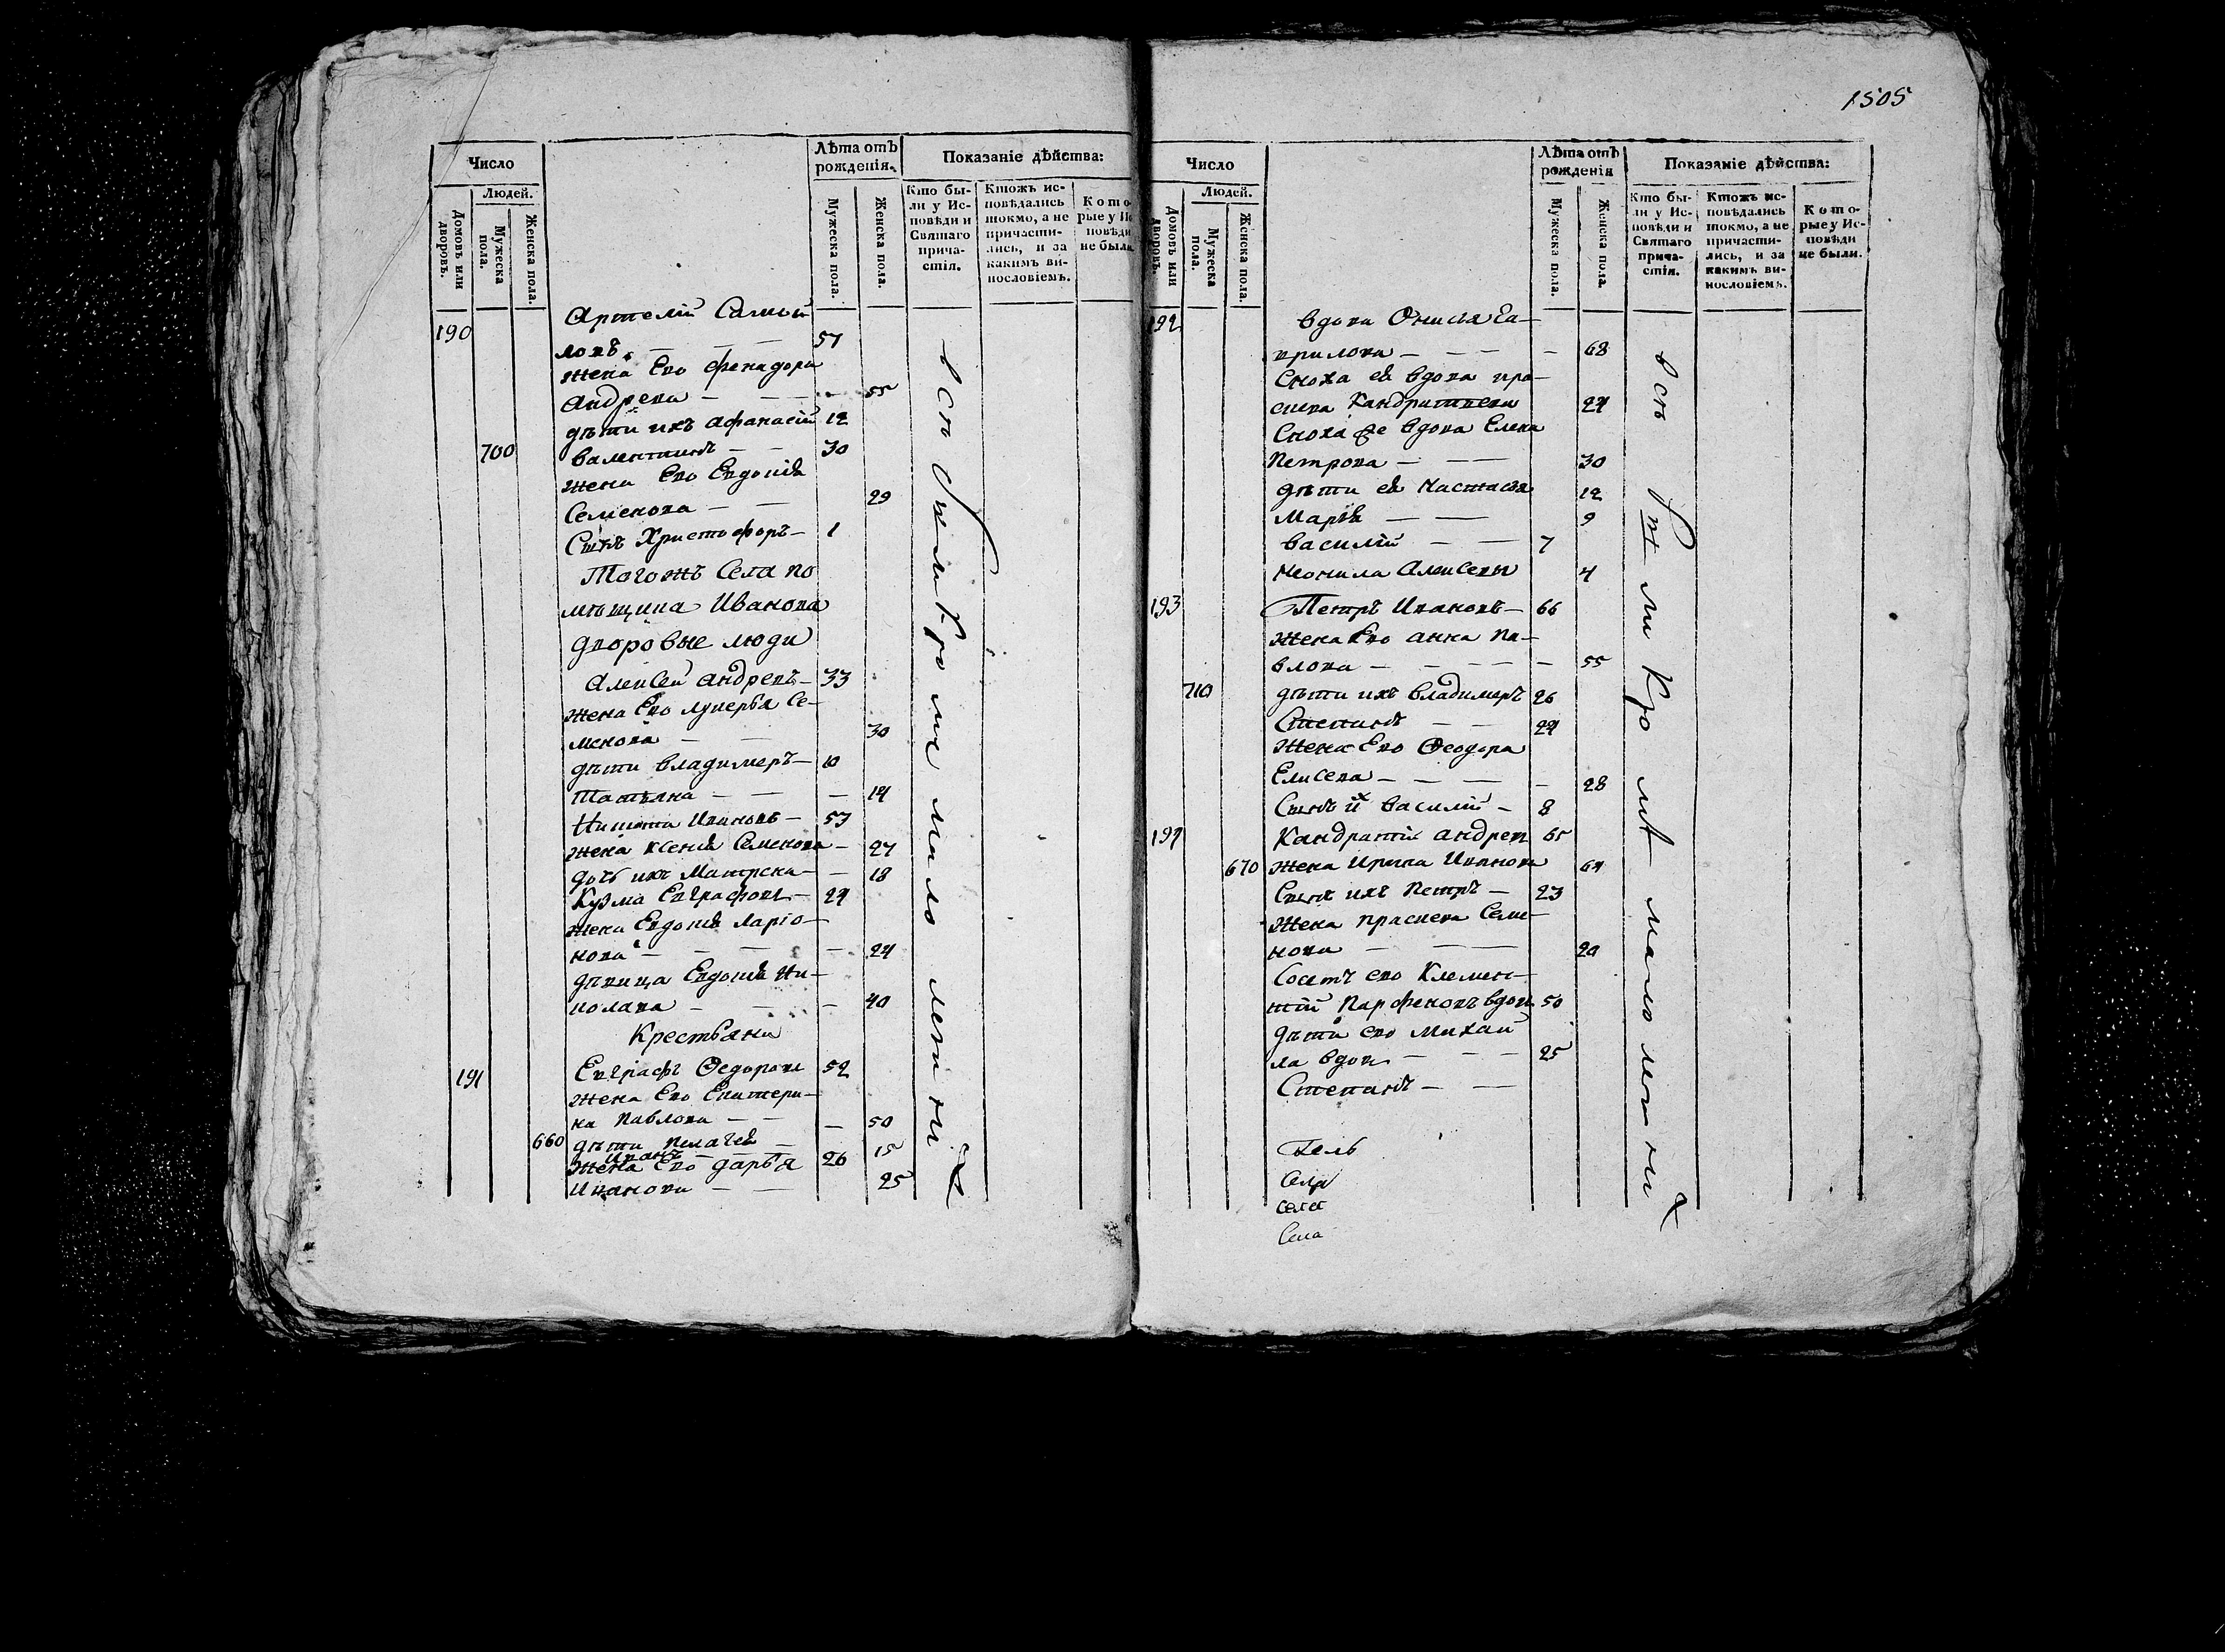 1505
Число
Лѣта отъ рожденія.
Показаніе дѣйства:
Людей.
Домовъ или дворовъ.
Мужеска пола.
Женска пола.
Мужеска пола.
Женска пола.
Кто бы-
ли у Ис-
повѣди и
Святаго
прича-
стія.
Ктожъ ис-
повѣдались
токмо, а не
причасти-
лись, и за
какимъ ви-
нословіемъ.
Кото-
рые у Ис
повѣди
не были
190 Артемій Самой
ловъ 57
жена Ево Фенадора
Андрева 55
дѣти ихъ Афанасій 12
700 Валентинъ 30
жена Ево Евдокія
Семенова 29
Сынъ Христофоръ 1
Тогожъ Села по
мѣщика Иванова
дворовые люди
Алексей Андревъ 33
жена Ево Лукерья Се-
менова 30
дѣти Владимеръ 10
Татьяна 14
Никита Ивановъ 53
жена Ксенія Семенова 47
дочь ихъ Матрена 18
Кузма Евграфовъ 24
жена Евдокія Ларіо-
нова 24
дѣвица Евдокія Ни-
колава 40
Крестьяни
191 Евграфъ Ѳедоровъ 52
жена Ево Екатери-
на Павлова 50
660 дѣти Пелагея 15
Иванъ 26
жена Ево Дарья
Иванова 25
всѣ были кроме малолетни х
Число
Лѣта отъ рожденія
Показаніе дѣйства:
Людей.
Домовъ или дворовъ.
Мужеска пола.
Женска пола.
Мужеска пола.
Женска пола.
Кто бы-
ли у Ис-
повѣди и
Святаго
прича-
стія.
Ктожъ ис-
повѣдались
токмо, а не
причасти-
лись, и за
какимъ ви-
нословіемъ.
Кото-
рые у Ис-
повѣди
не были.
192 вдова Онисья Га-
врилова 68
Сноха ея вдова Пра-
скева Кандратьева 24
Сноха же вдова Елена
Петрова 30
дѣти ея Настасья 12
Марья 9
Василій 7
Неонила Алексевы 4
193 Петръ Ивановъ 66
жена Ево Анна Па-
влова 55
710 дѣти ихъ Владимеръ 26
Степанъ 24
жена Ево Ѳеодора
Елисева 28
Сынъ их Василій 8
194 Кандратій Андрев 65
670 жена Ирина Иванова 64
Сынъ ихъ Петръ 23
жена Праскева Семе-
нова 20
Соседъ ево Клемен-
тій Парфеновъ вдов 50
дѣти ево Михаи
ла вдов 25
Степанъ
Села
Села
всѣ были кроме малолетни х